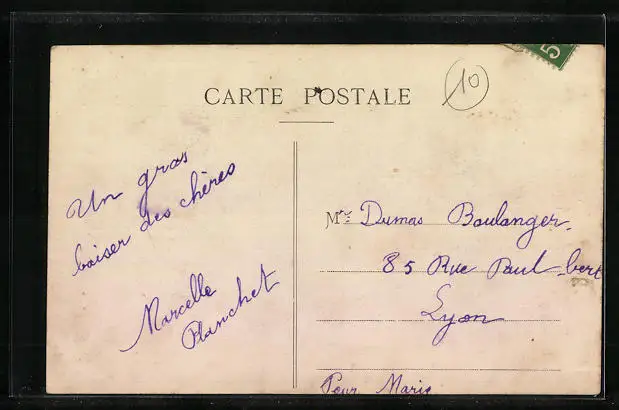 CARTE POSTALE
10
5
Un gras
baiser des chères
Marcelle
Planchet
Mme Dumas Boulanger.
85 Rue Paul-bert
Lyon
Pour Marie